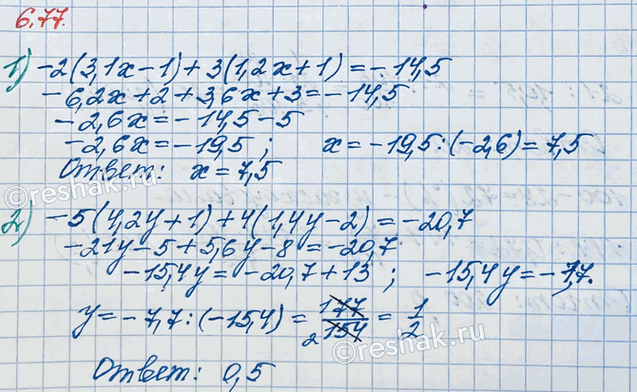 6.77.
1) -2(3,1x-1)+3(1,2x+1)=-14,5
-6,2x+2+3,6x+3=-14,5
-2,6x=-14,5-5
-2,6x=-19,5; x=-19,5:(-2,6)=7,5
Ответ: x=7,5
©reshak.ru
2) -5(4,2y+1)+4(1,4y-2)=-20,7
-21y-5+5,6y-8=-20,7
-15,4y=-20,7+13; -15,4y=-7,7.
y=-7,7:(-15,4)=177/2154=1/2
Ответ: 0,5
©reshak.ru